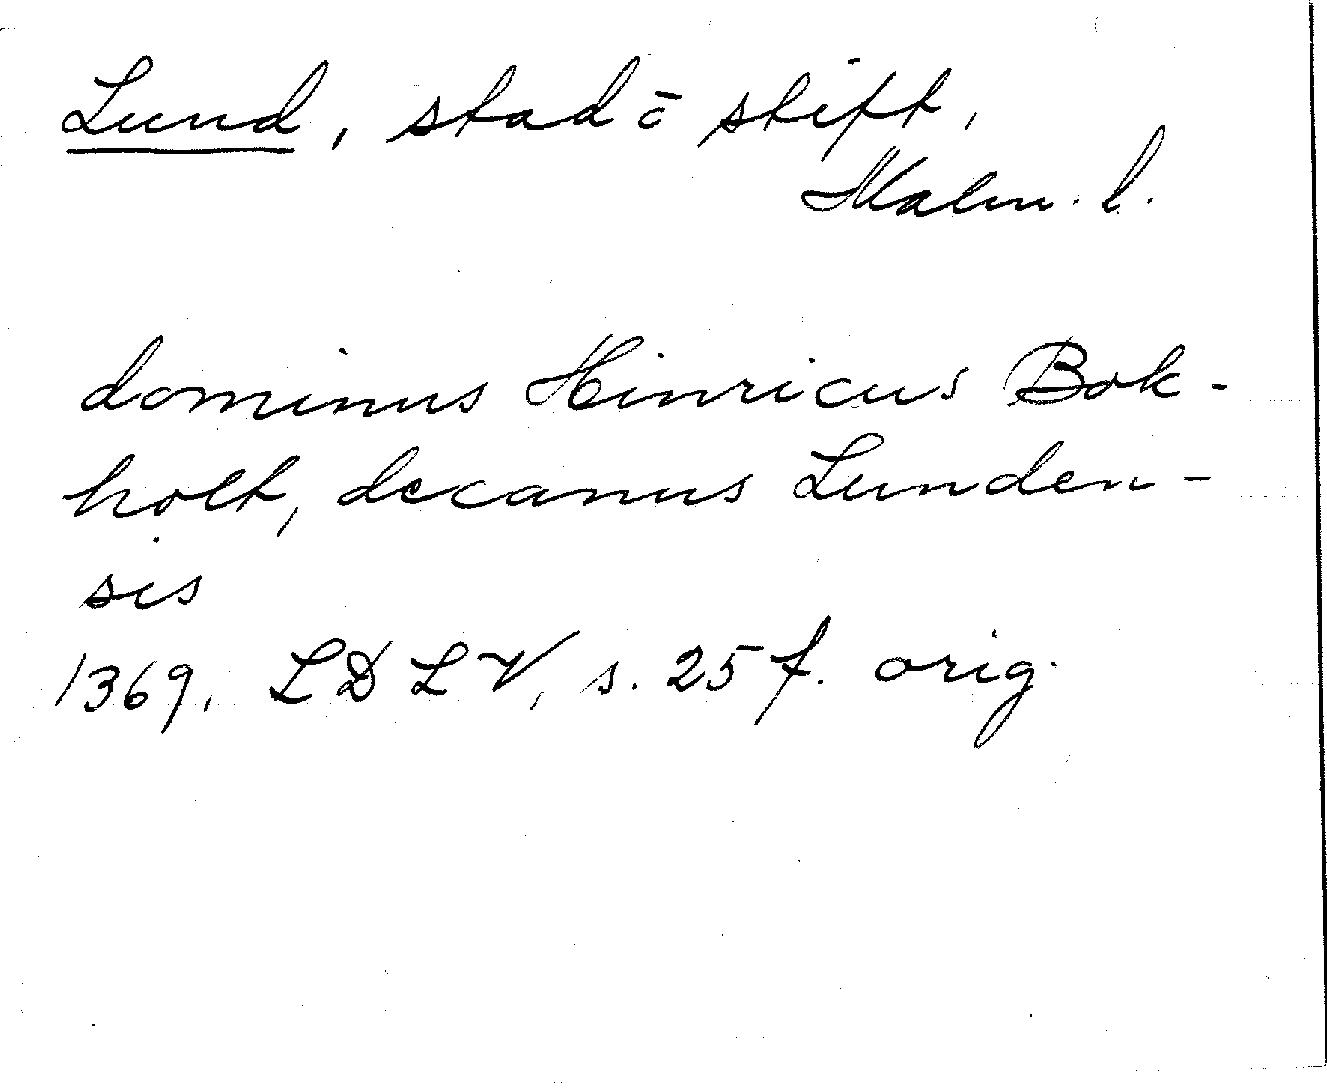 Lund, stad o stift,
Malm. l.
dominus Hinricus Bok-
holt, decanus Lunden-
sis
1369. LDLV, s. 25 f. orig.